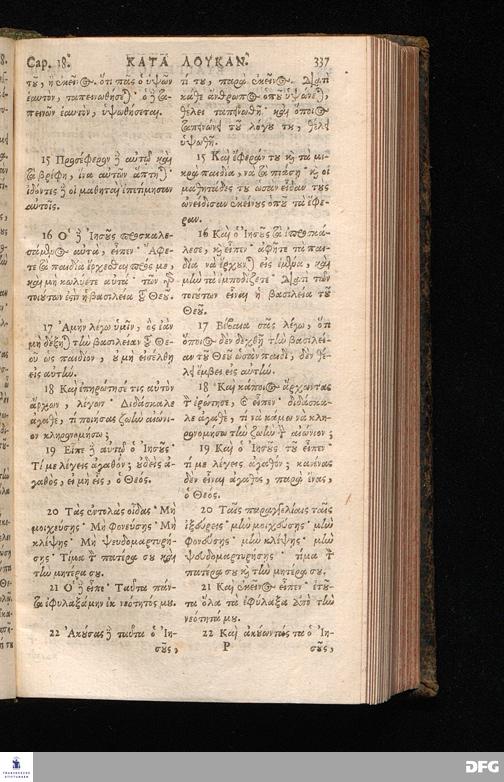 Cap. 18. ΚΑΤΑ ΛΟΥΚΑΝ. 337
τȣ, ἢ ἐκεῖνος. ὅτι πᾶς ὁ ὑψῶν
ἑαυτὸν, ταπεινωθήσεται· ὁ δὲ τα-
πεινῶν ἑαυτὸν, ὑψωθήσεται.
15 Προσέφερον δὲ αὐτῷ καὶ
τὰ βρέφη, ἵνα αὐτῶν ἅπτηται·
ἰδόντες δὲ οἱ μαθηταὶ ἐπετίμησαν
αὐτοῖς.
16 Ὁ δὲ Ἰησȣς προσκαλε-
σάμενος αὐτὰ, εἶπεν· Ἄφε-
τε τὰ παιδία ἔρχεσθαι πρός με,
καὶ μὴ κωλύετε αὐτά· τῶν γὰρ
τοιȣτων ἐστὶν ἡ βασιλεία τȣ Θεȣ.
17 Ἀμὴν λέγω ὑμῖν, ὃς ἐὰν
μὴ δέξηται τὴν βασιλείαν τȣ Θε-
οῦ ὡς παιδίον, ȣ μὴ εἰσέλθῃ
εἰς αὐτήν.
18 Καὶ ἐπηρώτησέ τις αὐτὸν
ἄρχων, λέγων· Διδάσκαλε
ἀγαθὲ, τί ποιήσας ζωὴν αἰώνι-
ον κληρονομήσω;
19 Εἶπε δὲ αὐτῷ ὁ Ἰησȣς·
Τί με λέγεις ἀγαθόν; ȣδεὶς ἀ-
γαθὸς, εἰ μὴ εἷς, ὁ Θεός.
20 Τὰς ἐντολὰς οἶδας· Μὴ
μοιχεύσῃς· Μὴ φονεύσῃς· Μὴ
κλέψῃς· Μὴ ψευδομαρτυρή-
σῃς· Τίμα τὸν πατέρα σȣ καὶ
τὴν μητέρα σȣ.
21 Ὁ δὲ εἶπε· Ταῦτα πάν-
τα ἐφυλαξάμην ἐκ νεότητός μȣ.
22 Ἀκȣσας δὲ ταῦτα ὁ Ἰη-
σȣς,
τί τȣ, παρὰ ἐκεῖνος. Διατὶ
κάθε ἄνθρωπος ὁπȣ ὑψώνεται,
θέλει ταπεινωθῆ· καὶ ὅποιος
ταπεινώνει τȣ λόγȣ τȣ, θέλει
ὑψωθῆ.
15 Καὶ ἔφεράν τȣ καὶ τὰ μι-
κρὰ παιδία, νὰ τὰ πιάση· καὶ οἱ
μαθητάδες τȣ ὡσὰν εἶδαν τȣς
ὠνείδισαν ἐκείνȣς ὁπȣ τὰ ἔφε-
ραν.
16 Καὶ ὁ Ἰησȣς τὰ ἐπροσκά-
λεσε, καὶ εἶπεν· ἀφῆτε τὰ παι-
δία νὰ ἔρχωνται εἰς ἐμένα, καὶ
μὴν τὰ ἐμποδίζετε· Διατὶ τῶν
τοιȣτων εἶναι ἡ βασιλεία τȣ
Θεȣ.
17 Βέβαια σᾶς λέγω, ὅτι
ὅποιος δὲν δεχθῆ τὴν βασιλεί-
αν τȣ Θεȣ ὡσὰν παιδὶ, δὲν θέ-
λει ἔμβει εἰς αὐτήν.
18 Καὶ κάποιος ἄρχοντας
τὸν ἐρώτησε, καὶ εἶπεν· διδάσκα-
λε ἀγαθὲ, τί νὰ κάμω νὰ κλη-
ρονομήσω τὴν ζωὴν τὴν αἰώνιον;
19 Καὶ ὁ Ἰησȣς τȣ εἶπεν·
τί με λέγεις ἀγαθόν; κανένας
δὲν εἶναι ἀγαθὸς, παρὰ ἕνας,
ὁ Θεός.
20 Ταῖς παραγγελίαις ταῖς
ἐξεύρεις· μὴν μοιχεύσης· μὴν
φονεύσης· μὴν κλέψης· μὴν
ψευδομαρτυρήσης· τίμα τὸν
πατέρα σȣ καὶ τὴν μητέρα σȣ.
21 Καὶ ἐκεῖνος εἶπεν· ἐτȣ-
τα ὅλα τὰ ἐφύλαξα ἀπὸ τὴν
νεότητά μȣ.
22 Καὶ ἀκȣωντάς τα ὁ Ἰη-
P σȣς,
DFG